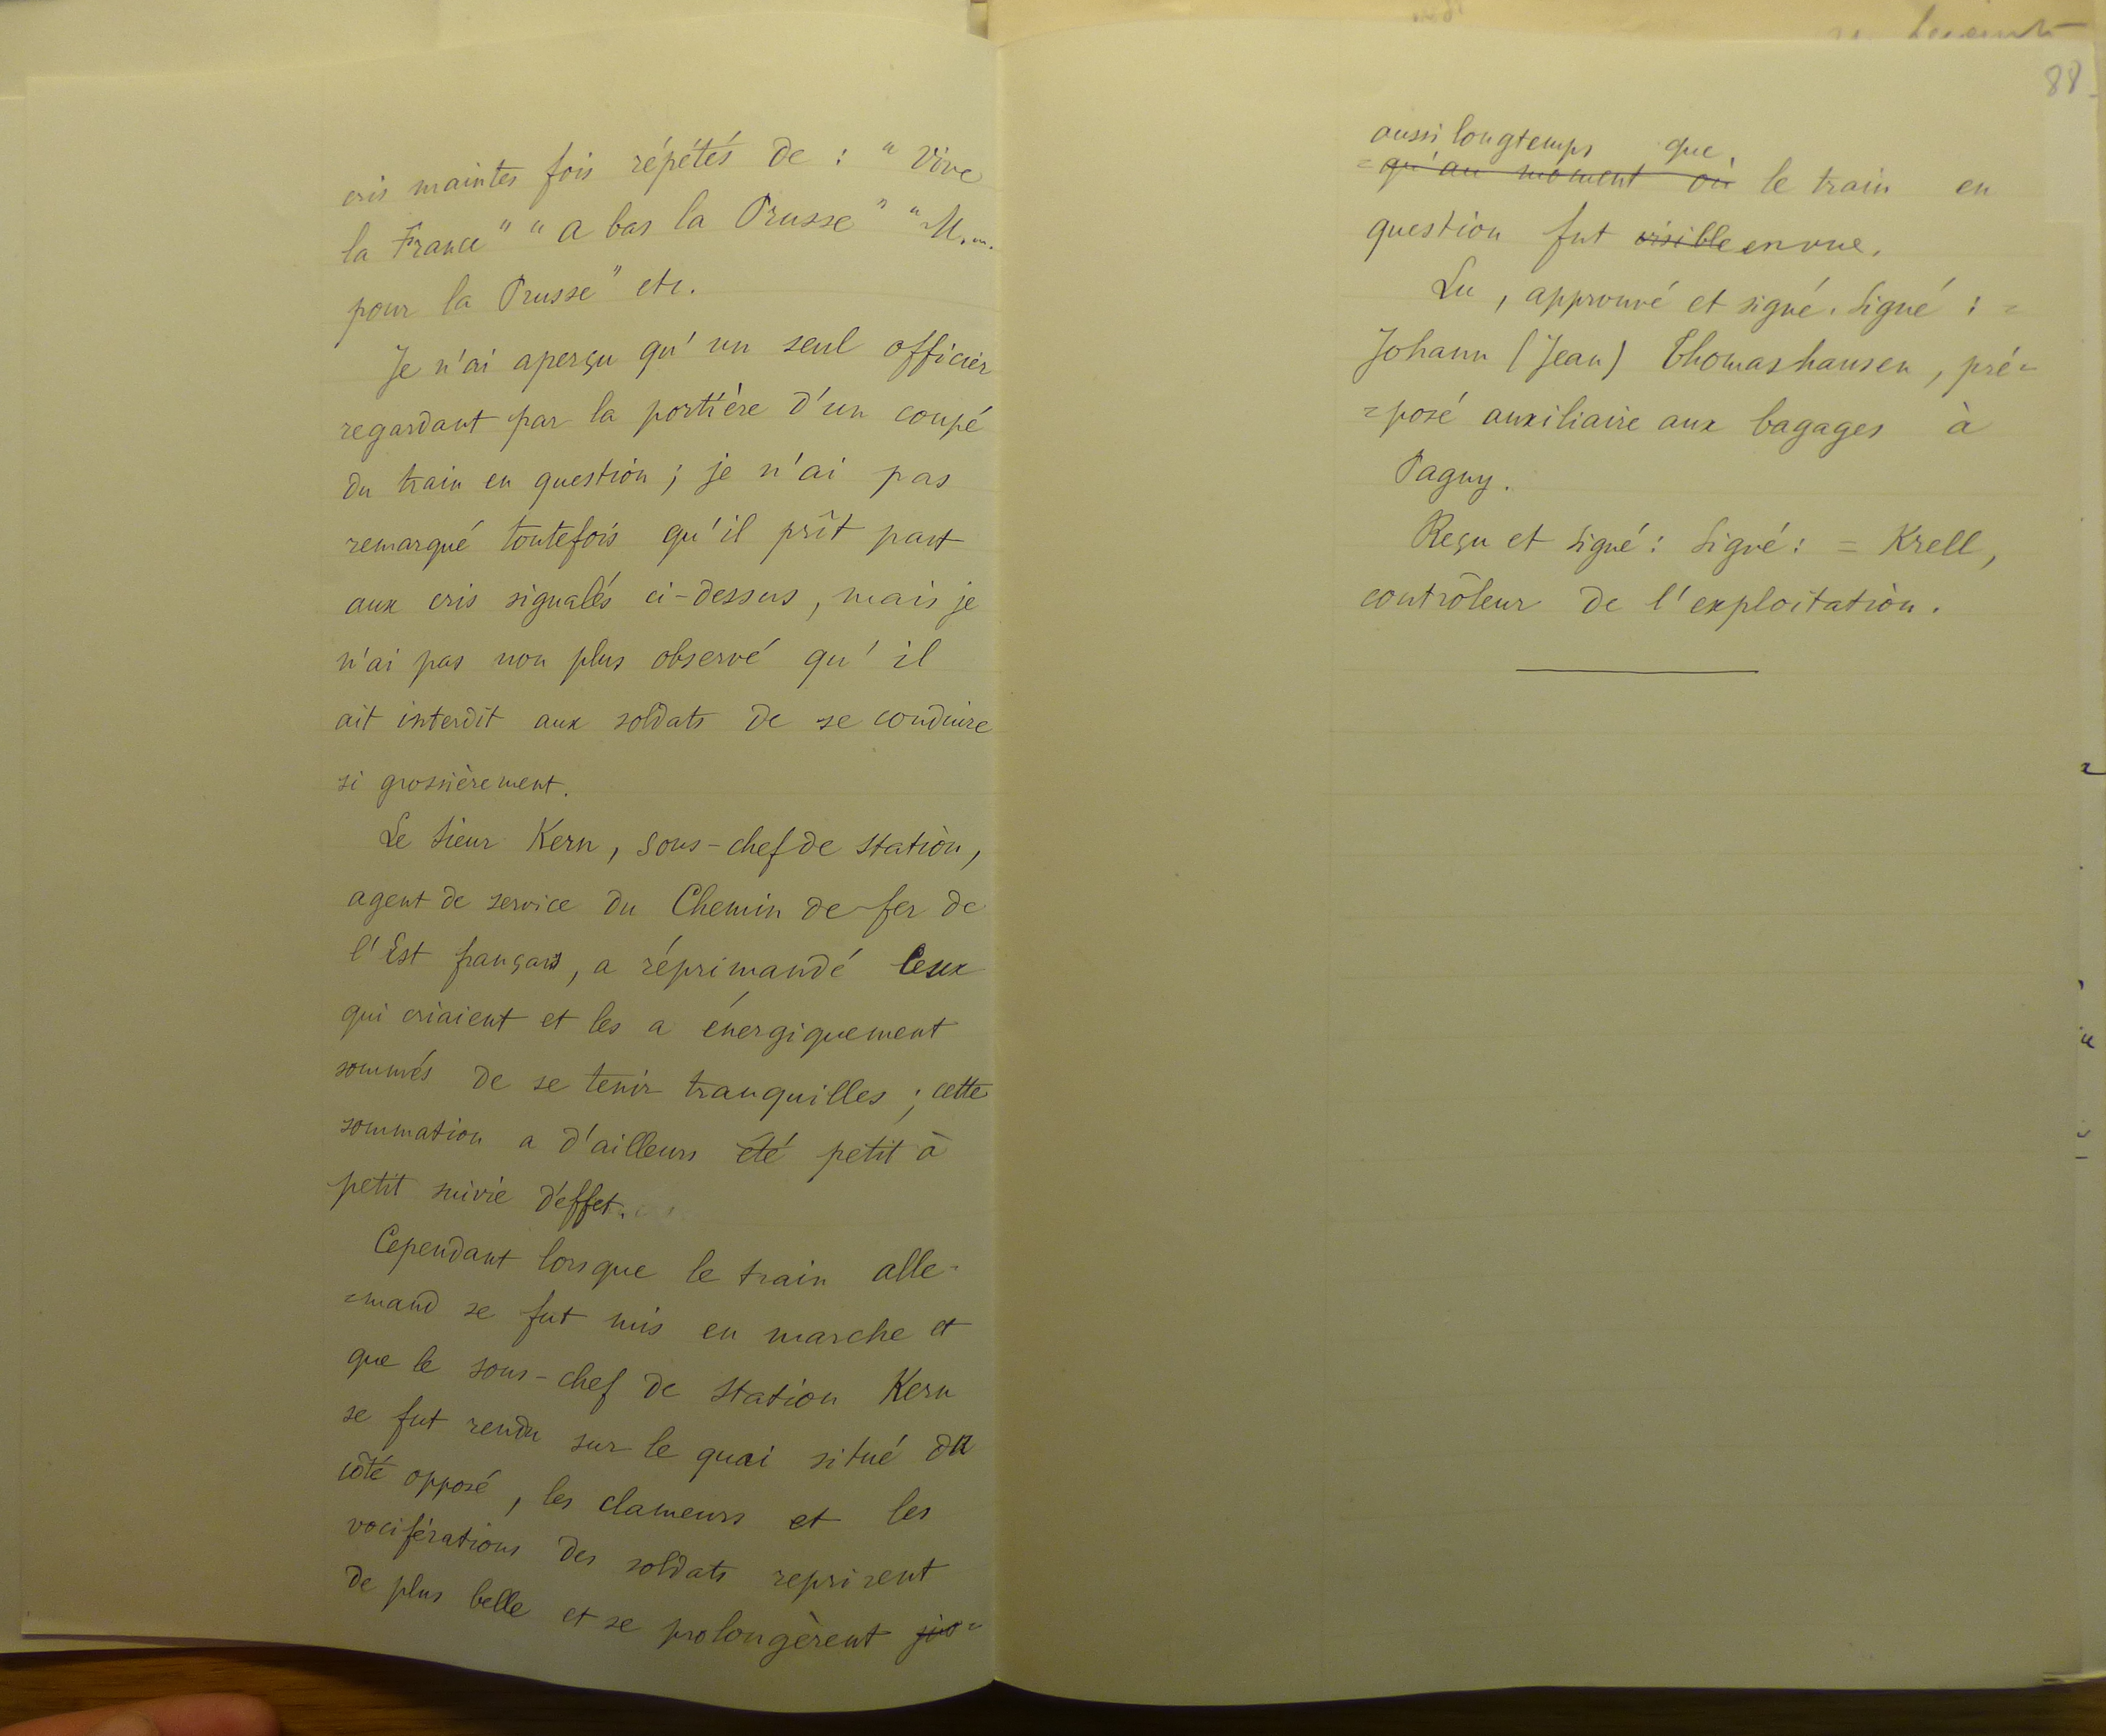 cris maintes fois répétés de : " Vive
la France " " A bas la Prusse " " M...
pour la Prusse " etc.
Je n'ai aperçu qu'un seul officier
regardant par la portière d'un coupé
du train en question ; je n'ai pas
remarqué toutefois qu'il prît part
aux cris signalés ci-dessus, mais je
n'ai pas non plus observé qu'il
ait interdit aux soldats de se conduire
si grossièrement.
Le sieur Kern, sous-chef de station,
agent de service du Chemin de fer de
l'Est français, a réprimandé ceux
qui criaient et les a énergiquement
sommés de se tenir tranquilles ; cette
sommation a d'ailleurs été petit à
petit suivie d'effet.
Cependant lorsque le train alle=
=mand se fut mis en marche et
que le sous-chef de station Kern
se fut rendu sur le quai situé du
côté opposé, les clameurs et les
vociférations des soldats reprirent
de plus belle et se prolongèrent jus=
88
aussi longtemps que
=qu'au moment où le train en
question fut visible en vue.
Lu, approuvé et signé. Signé : =
Johann (Jean) Thomashausen, pré=
=posé auxiliaire aux bagages à
Pagny.
Reçu et signé : Signé : = Krell,
contrôleur de l'exploitation.